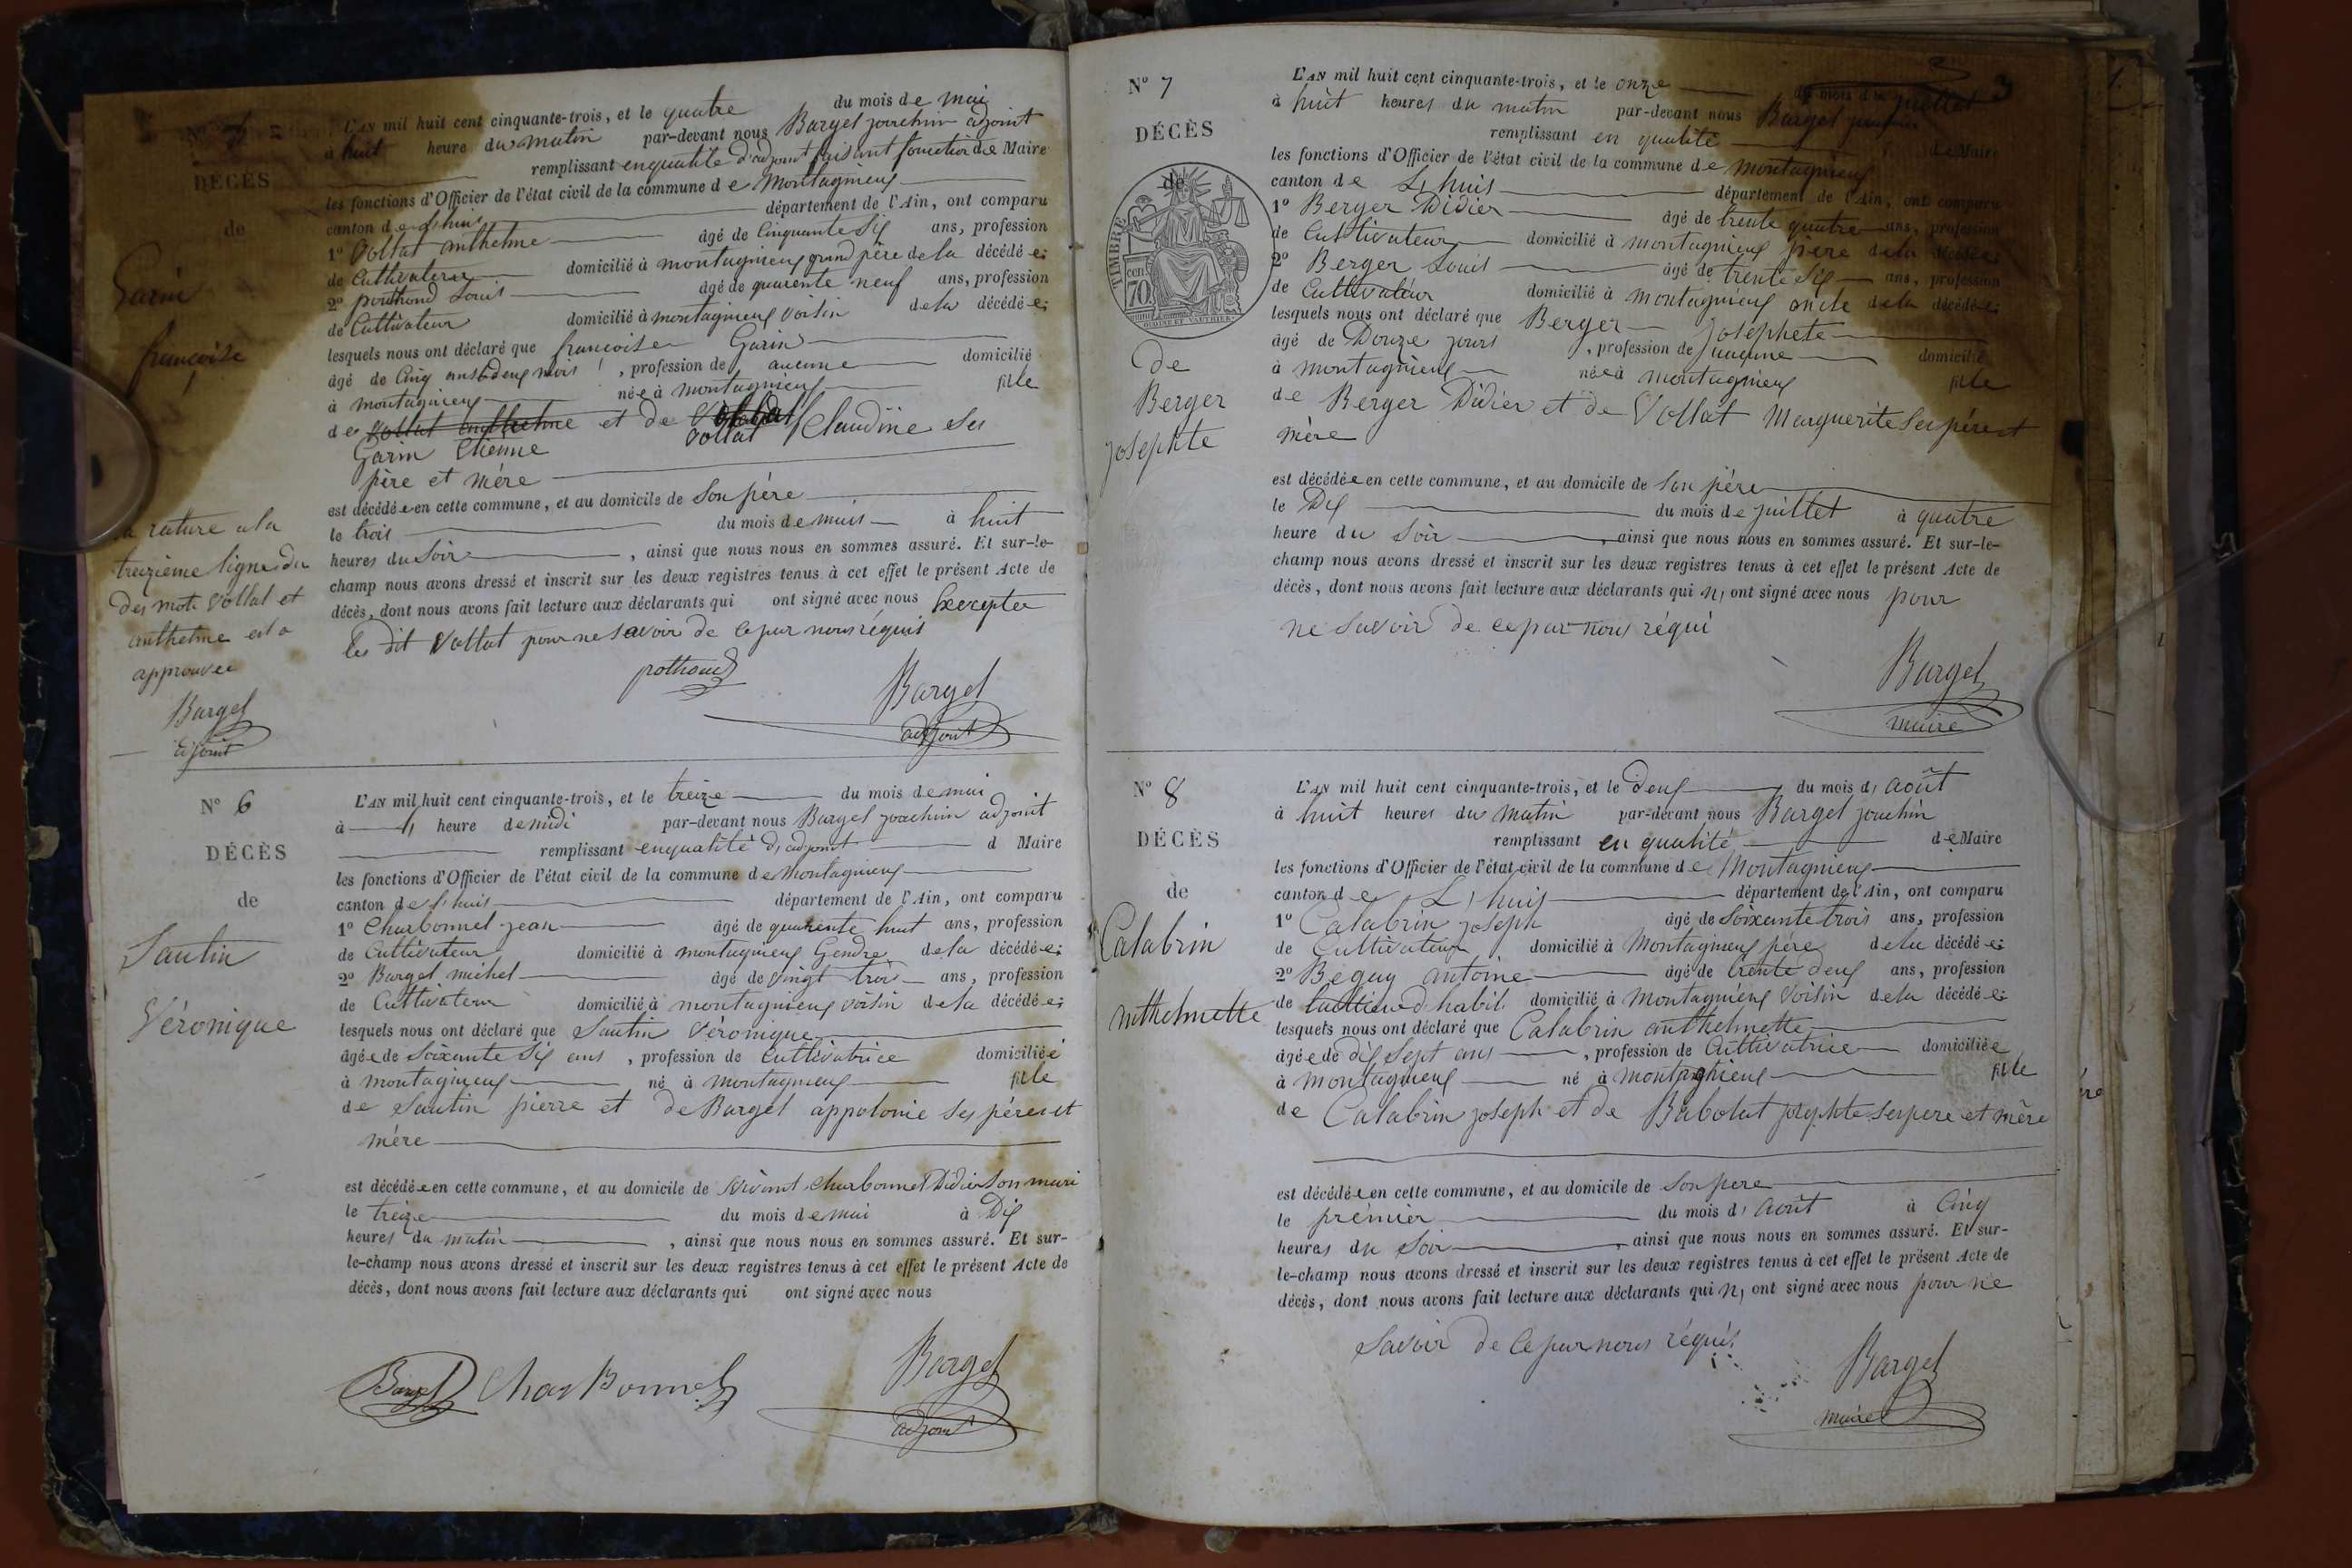 DÉCÈS
de
Garin
françoise
L'AN mil huit cent cinquante-trois, et le quatre du mois de mai
à huit heure du matin par-devant nous Bargel joachim adjoint
remplissant en qualité d'adjoint faisant fonction de Maire
les fonctions d'Officier de l'état civil de la commune de Montagnieux
canton de L'huis département de l'Ain, ont comparu
1° Vollat anthelme âgé de Cinquante Six ans, profession
de Cultivateur domicilié à montagnieux grand père de la décédée;
2° pothoud Louis âgé de quarente neuf ans, profession
de Cultivateur domicilié à montagnieux voisin de la décédée;
lesquels nous ont déclaré que françoise Garin
âgé de Cinq ans & deux mois, profession de aucune domicilié
à montagnieux née à montagnieux fille
de Vollat anthelme et de Vollat Claudine ses
Garin Etienne
père et mère
est décédée en cette commune, et au domicile de Son père
le trois du mois de mai à huit
heures du Soir, ainsi que nous nous en sommes assuré. Et sur-le-
champ nous avons dressé et inscrit sur les deux registres tenus à cet effet le présent Acte de
décès, dont nous avons fait lecture aux déclarants qui ont signé avec nous Excepter
les dit Vollat pour ne savoir de ce par nous réquis
pothoud
Bargel
adjoint
la rature a la
treizième ligne du
des mots Vollat et
anthelme est
approuvée
Bargel
adjoint
N° 6
DÉCÈS
de
Sautin
Véronique
L'AN mil huit cent cinquante-trois, et le treize du mois de mai
à heure de midi par-devant nous Bargel joachim adjoint
remplissant en qualité d'adjoint d Maire
les fonctions d'Officier de l'état civil de la commune de Montagnieux
canton de L'huis département de l'Ain, ont comparu
1° Charbonnel jean âgé de quarente huit ans, profession
de Cultivateur domicilié à montagnieux Gendre de la décédée;
2° Bargel michel âgé de vingt trois ans, profession
de Cultivateur domicilié à montagnieux voisin de la décédée;
lesquels nous ont déclaré que Sautin Véronique
âgée de Soixante Six ans, profession de Cultivatrice domiciliée
à montagnieux né à montagnieux fille
de Sautin pierre et de Bargel appolonie ses pères et
mère
est décédée en cette commune, et au domicile de vivant Charbonnel Didier Son mari
le treize du mois de mai à Dix
heures du matin, ainsi que nous nous en sommes assuré. Et sur-
le-champ nous avons dressé et inscrit sur les deux registres tenus à cet effet le présent Acte de
décès, dont nous avons fait lecture aux déclarants qui ont signé avec nous
Bargel CharBonnel
Bargel
adjoint
3
N° 7
DÉCÈS
de
TIMBRE
70
de
Berger
josephte
L'AN mil huit cent cinquante-trois, et le onze du mois de juillet
à huit heures du matin par-devant nous Bargel joachim
remplissant en qualité de Maire
les fonctions d'Officier de l'état civil de la commune de Montagnieux
canton de L'huis département de l'Ain, ont comparu
1° Berger Didier âgé de trente quatre ans, profession
de Cultivateur domicilié à montagnieux père de la décédée
2° Berger Louis âgé de trente Six ans, profession
de Cultivateur domicilié à montagnieux oncle de la décédée;
lesquels nous ont déclaré que Berger josephete
âgé de Douze jours, profession de aucune domicilié
à montagnieux née à montagnieux fille
de Berger Didier et de Vollat Marguerite Ses père et
mère
est décédée en cette commune, et au domicile de Son père
le Dix du mois de juillet à quatre
heure du Soir, ainsi que nous nous en sommes assuré. Et sur-le-
champ nous avons dressé et inscrit sur les deux registres tenus à cet effet le présent Acte de
décès, dont nous avons fait lecture aux déclarants qui n'ont signé avec nous pour
ne Savoir de ce par nous réqui
Bargel
maire
N° 8
DÉCÈS
de
Calabrin
nthelmette
L'AN mil huit cent cinquante-trois, et le deux du mois d'août
à huit heures du matin par-devant nous Bargel joachin
remplissant en qualité de Maire
les fonctions d'Officier de l'état civil de la commune de Montagnieux
canton de L'huis département de l'Ain, ont comparu
1° Calabrin joseph âgé de Soixante trois ans, profession
de Cultivateur domicilié à Montagnieux père de la décédée;
2° Beguy antoine âgé de trente deux ans, profession
de d'habit domicilié à Montagnieux Voisin de la décédée;
lesquels nous ont déclaré que Calabrin anthelmette
âgée de dix Sept ans, profession de Cultivatrice domiciliée
à Montagnieux né à Montagnieux fille
de Calabrin joseph et de Babolat josephte Ses pere et mère
est décédée en cette commune, et au domicile de Son pere
le prémier du mois d'Août à Cinq
heures du Soir, ainsi que nous nous en sommes assuré. Et sur-
le-champ nous avons dressé et inscrit sur les deux registres tenus à cet effet le présent Acte de
décès, dont nous avons fait lecture aux déclarants qui n'ont signé avec nous pour ne
Savoir de ce par nous réquis
Bargel
maire